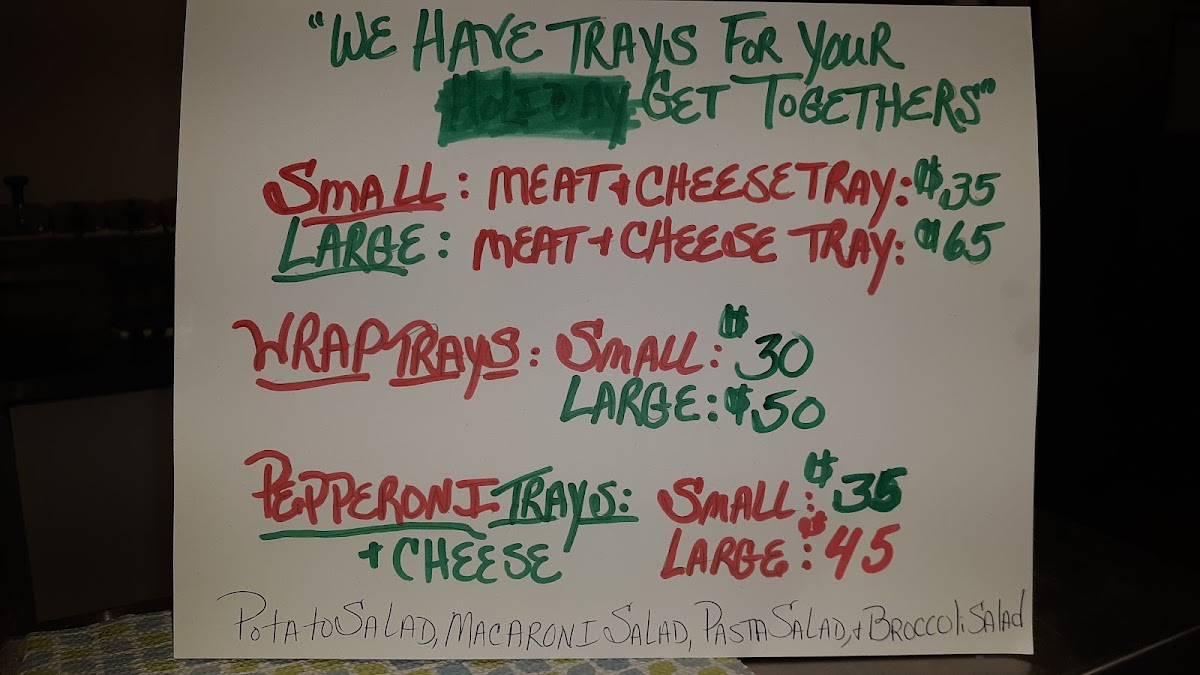 "WE HAVE TRAYS FOR YOUR
HOLIDAY GET TOGETHERS"
SMALL: MEAT + CHEESE TRAY: $35
LARGE: MEAT + CHEESE TRAY: $65
WRAP TRAYS: SMALL: $30
LARGE: $50
PEPPERONI TRAYS: SMALL: $35
+ CHEESE LARGE: $45
POTATO SALAD, MACARONI SALAD, PASTA SALAD, + BROCCOLI SALAD